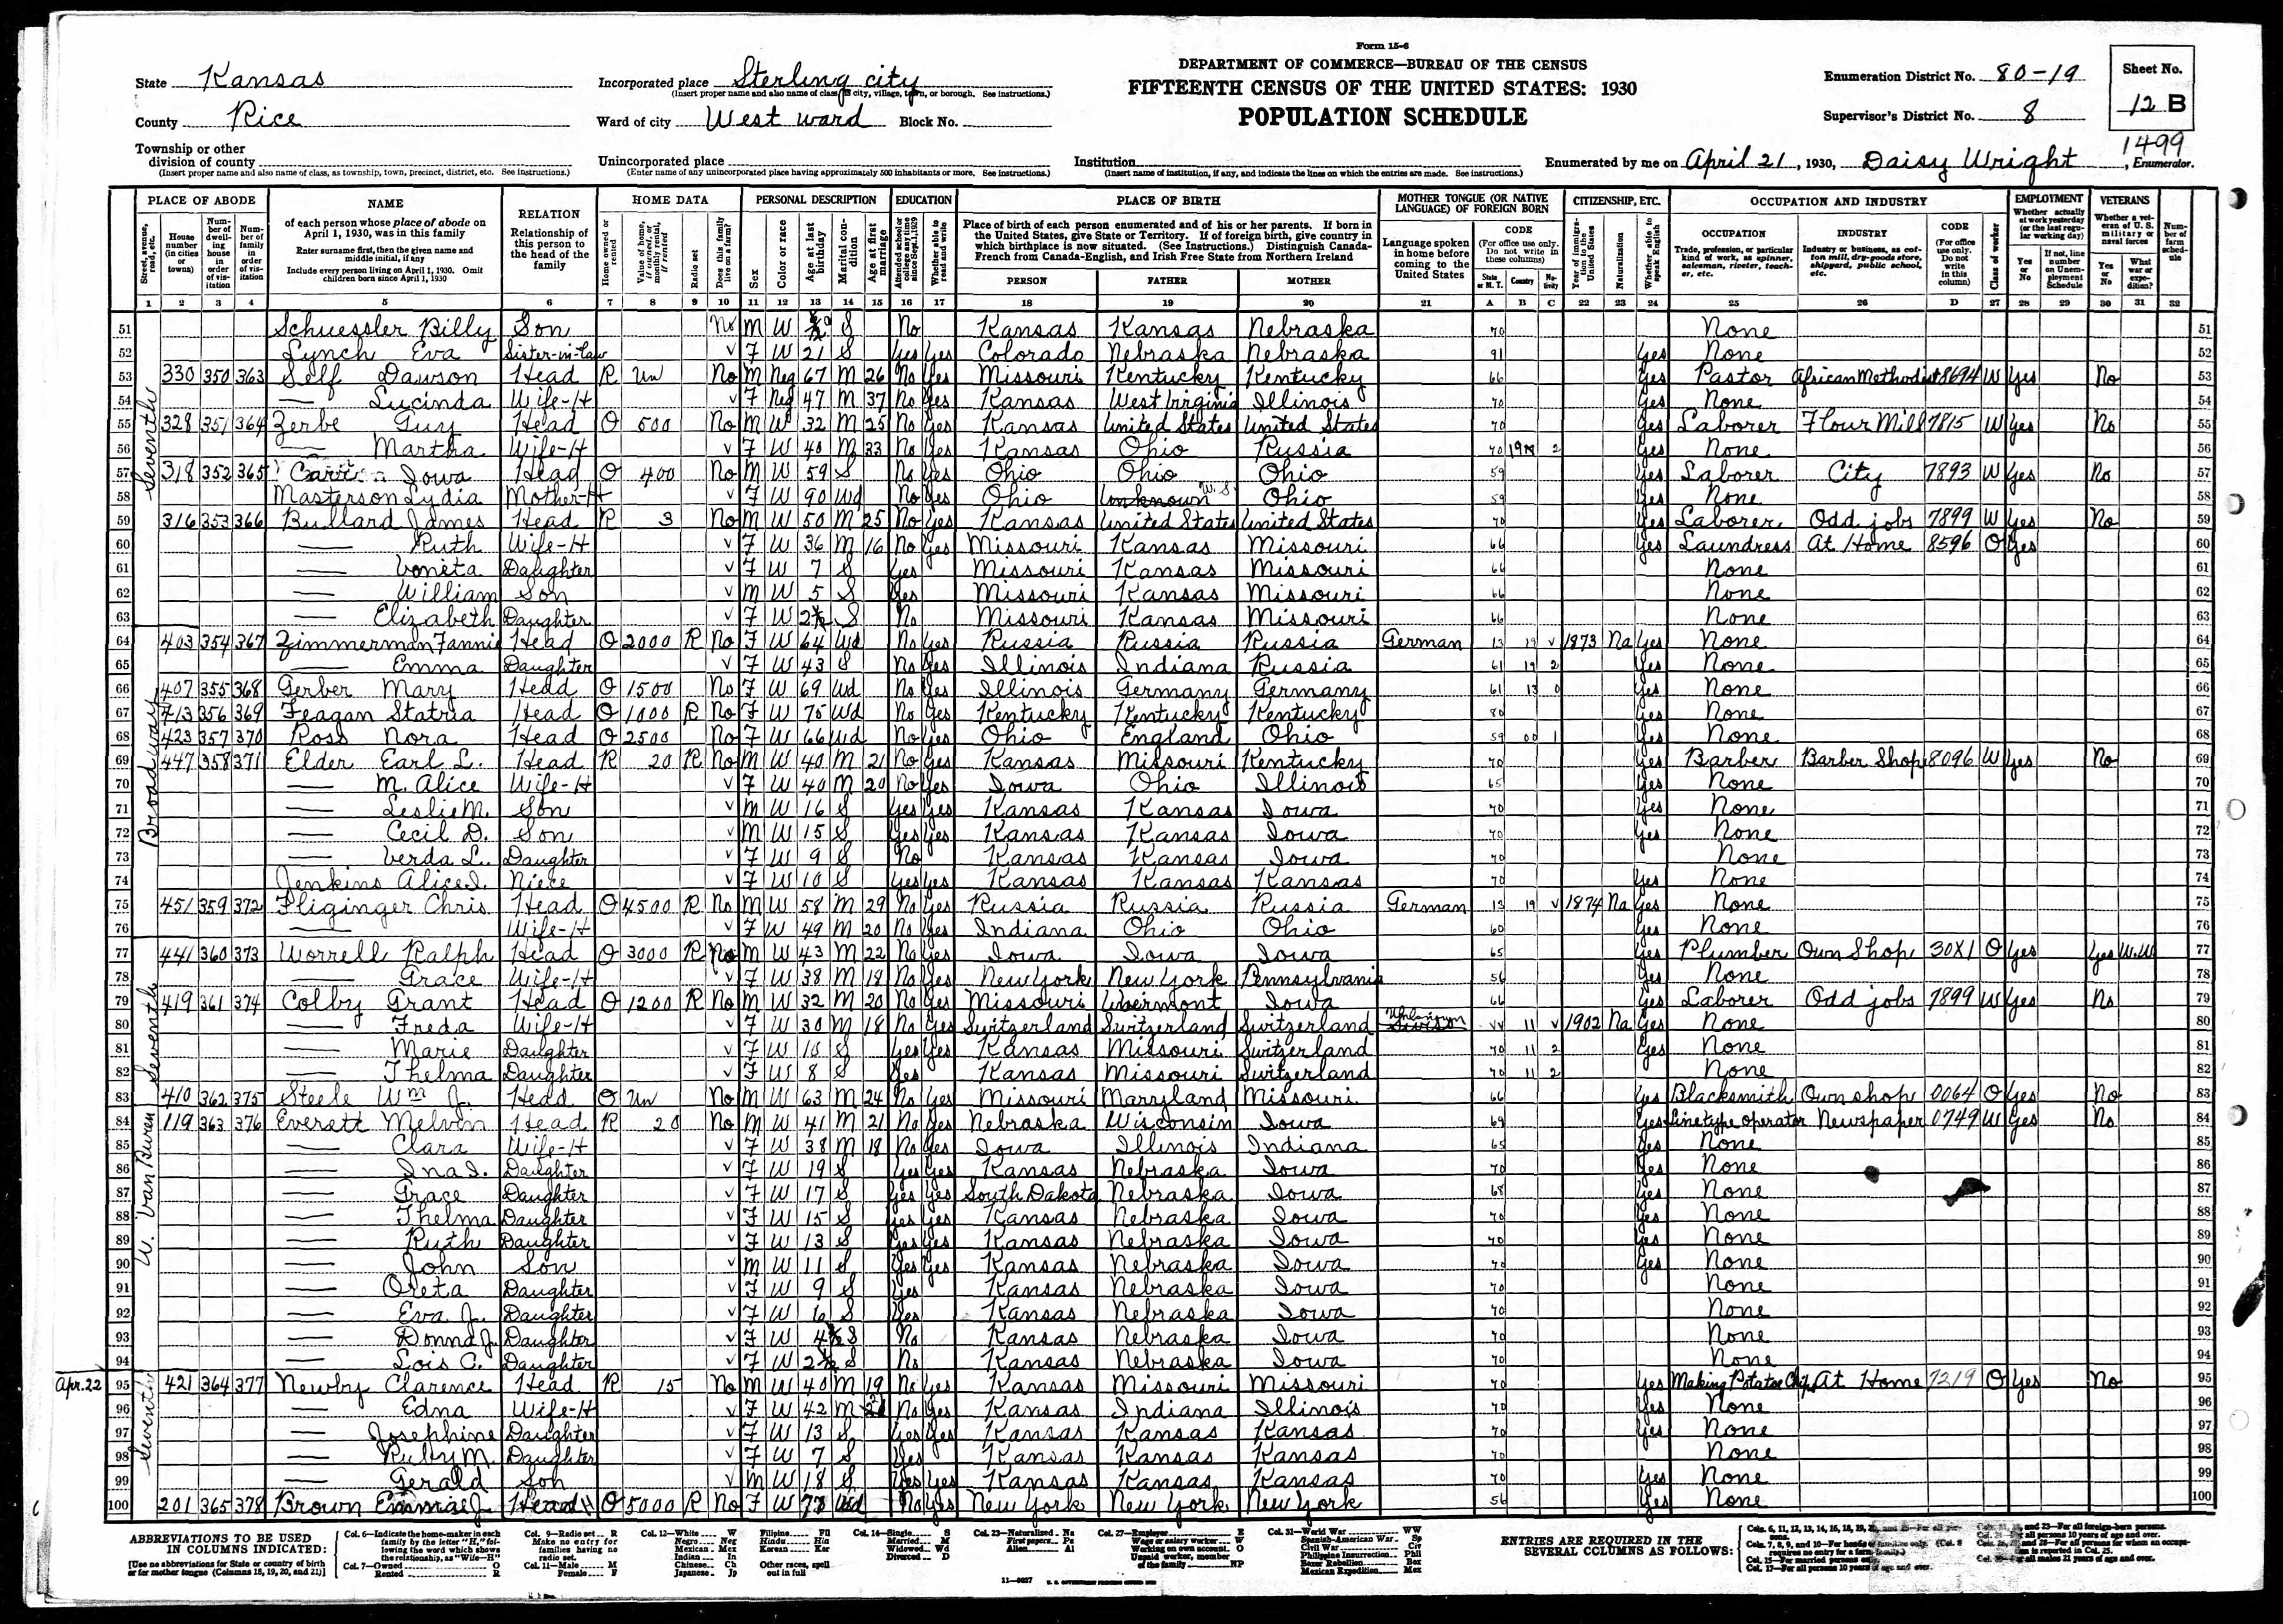 Form 15-6
DEPARTMENT OF COMMERCE—BUREAU OF THE CENSUS
FIFTEENTH CENSUS OF THE UNITED STATES: 1930
POPULATION SCHEDULE
State Kansas
County Rice
Township or other division of county
(Insert proper name and also name of class, as township, town, precinct, district, etc. See instructions.)
Incorporated place Sterling city
(Insert proper name and also name of class, as city, village, town, or borough. See instructions.)
Ward of city West ward Block No.
Unincorporated place
(Enter name of any unincorporated place having approximately 500 inhabitants or more. See instructions.)
Institution
(Insert name of institution, if any, and indicate the lines on which the entries are made. See instructions.)
Enumeration District No. 80-19
Supervisor's District No. 8
Sheet No. 12 B
1499
Enumerated by me on April 21, 1930, Daisy Wright, Enumerator.
PLACE OF ABODE NAME RELATION HOME DATA PERSONAL DESCRIPTION EDUCATION PLACE OF BIRTH MOTHER TONGUE (OR NATIVE LANGUAGE) OF FOREIGN BORN CITIZENSHIP, ETC. OCCUPATION AND INDUSTRY EMPLOYMENT VETERANS
1 2 3 4 5 6 7 8 9 10 11 12 13 14 15 16 17 18 19 20 21 A B C 22 23 24 25 26 D 27 28 29 30 31 32
51 Schuessler Billy Son No M W S No Kansas Kansas Nebraska 70 None 51
52 Lynch Eva Sister-in-law V F W 21 S Yes Yes Colorado Nebraska Nebraska 91 Yes None 52
53 330 350 363 Self Dawson Head R Un No M Neg 67 M 26 No Yes Missouri Kentucky Kentucky 66 Yes Pastor African Methodist 8694 W Yes No 53
54 — Lucinda Wife-H V F Neg 47 M 37 No Yes Kansas West Virginia Illinois 70 Yes None 54
55 328 351 364 Zerbe Guy Head O 500 No M W 32 M 25 No Yes Kansas United States United States 70 Yes Laborer Flour Mill 7815 W Yes No 55
56 — Martha Wife-H V F W 40 M 33 No Yes Kansas Ohio Russia 70 19 2 Yes None 56
57 318 352 365 Iowa Head O 400 No M W 59 S No Yes Ohio Ohio Ohio 59 Yes Laborer City 7893 W Yes No 57
58 Masterson Lydia Mother-H V F W 90 Wd No Yes Ohio Unknown U.S. Ohio 59 Yes None 58
59 316 353 366 Bullard James Head R 3 No M W 50 M 25 No Yes Kansas United States United States 70 Yes Laborer Odd jobs 7899 W Yes No 59
60 — Ruth Wife-H V F W 36 M 16 No Yes Missouri Kansas Missouri 66 Yes Laundress At Home 8596 O Yes 60
61 — Voneta Daughter V F W 7 S Yes Missouri Kansas Missouri 66 None 61
62 — William Son V M W 5 S Yes Missouri Kansas Missouri 66 None 62
63 — Elizabeth Daughter V F W S No Missouri Kansas Missouri 66 None 63
64 403 354 367 Zimmerman Fannie Head O 2000 R No F W 64 Wd No Yes Russia Russia Russia German 13 19 V 1873 Na Yes None 64
65 — Emma Daughter V F W 43 S No Yes Illinois Indiana Russia 61 19 2 Yes None 65
66 407 355 368 Gerber Mary Head O 1500 No F W 69 Wd No Yes Illinois Germany Germany 61 13 0 Yes None 66
67 413 356 369 Feagan Statria Head O 1000 R No F W 75 Wd No Yes Kentucky Kentucky Kentucky 80 Yes None 67
68 423 357 370 Ross Nora Head O 2500 No F W 66 Wd No Yes Ohio England Ohio 59 00 1 Yes None 68
69 447 358 371 Elder Earl L. Head R 20 R No M W 40 M 21 No Yes Kansas Missouri Kentucky 70 Yes Barber Barber Shop 8096 W Yes No 69
70 — M. Alice Wife-H V F W 40 M 20 No Yes Iowa Ohio Illinois 65 Yes None 70
71 — Leslie M. Son V M W 16 S Yes Yes Kansas Kansas Iowa 70 Yes None 71
72 — Cecil D. Son V M W 15 S Yes Yes Kansas Kansas Iowa 70 Yes None 72
73 — Verda L. Daughter V F W 9 S No Kansas Kansas Iowa 70 None 73
74 Jenkins Alice I. Niece V F W 10 S Yes Yes Kansas Kansas Kansas 70 Yes None 74
75 451 359 372 Fliginger Chris Head O 4500 R No M W 58 M 29 No Yes Russia Russia Russia German 13 19 V 1874 Na Yes None 75
76 — Wife-H V F W 49 M 20 No Yes Indiana Ohio Ohio 60 Yes None 76
77 441 360 373 Worrell Ralph Head O 3000 R No M W 43 M 22 No Yes Iowa Iowa Iowa 65 Yes Plumber Own Shop 30X1 O Yes Yes W.W. 77
78 — Grace Wife-H V F W 38 M 18 No Yes New York New York Pennsylvania 56 Yes None 78
79 419 361 374 Colby Grant Head O 1200 R No M W 32 M 20 No Yes Missouri Vermont Iowa 66 Yes Laborer Odd jobs 7899 W Yes No 79
80 — Freda Wife-H V F W 30 M 18 No Yes Switzerland Switzerland Switzerland Unknown VV 11 V 1902 Na Yes None 80
81 — Marie Daughter V F W 10 S Yes Yes Kansas Missouri Switzerland 70 11 2 Yes None 81
82 — Thelma Daughter V F W 8 S Yes Kansas Missouri Switzerland 70 11 2 None 82
83 410 362 375 Steele Wm J. Head O Un No M W 63 M 24 No Yes Missouri Maryland Missouri 66 Yes Blacksmith Own shop 0064 O Yes No 83
84 119 363 376 Everett Melvin Head R 20 No M W 41 M 21 No Yes Nebraska Wisconsin Iowa 69 Yes Linetype operator Newspaper 0749 W Yes No 84
85 — Clara Wife-H V F W 38 M 18 No Yes Iowa Illinois Indiana 65 Yes None 85
86 — Ina I. Daughter V F W 19 S Yes Yes Kansas Nebraska Iowa 70 Yes None 86
87 — Grace Daughter V F W 17 S Yes Yes South Dakota Nebraska Iowa 68 Yes None 87
88 — Thelma Daughter V F W 15 S Yes Yes Kansas Nebraska Iowa 70 Yes None 88
89 — Ruth Daughter V F W 13 S Yes Yes Kansas Nebraska Iowa 70 Yes None 89
90 — John Son V M W 11 S Yes Yes Kansas Nebraska Iowa 70 Yes None 90
91 — Oreta Daughter V F W 9 S Yes Kansas Nebraska Iowa 70 None 91
92 — Eva J. Daughter V F W 6 S Yes Kansas Nebraska Iowa 70 None 92
93 — Donna J. Daughter V F W S No Kansas Nebraska Iowa 70 None 93
94 — Lois C. Daughter V F W S No Kansas Nebraska Iowa 70 None 94
Apr. 22 95 421 364 377 Newby Clarence Head R 15 No M W 40 M 19 No Yes Kansas Missouri Missouri 70 Yes Making Potatoe Chips At Home 7219 O Yes No 95
96 — Edna Wife-H V F W 42 M 21 No Yes Kansas Indiana Illinois 70 Yes None 96
97 — Josephine Daughter V F W 13 S Yes Yes Kansas Kansas Kansas 70 Yes None 97
98 — Ruby M. Daughter V F W 7 S Yes Kansas Kansas Kansas 70 None 98
99 — Gerald Son V M W 18 S Yes Yes Kansas Kansas Kansas 70 Yes None 99
100 201 365 378 Brown Head H O 5000 R No F W Wd No Yes New York New York New York 56 Yes None 100
Seventh
Broadway
Seventh
W. Van Buren
Seventh
ABBREVIATIONS TO BE USED IN COLUMNS INDICATED:
[Use no abbreviations for State or country of birth or for mother tongue (Columns 18, 19, 20, and 21)]
ENTRIES ARE REQUIRED IN THE SEVERAL COLUMNS AS FOLLOWS: